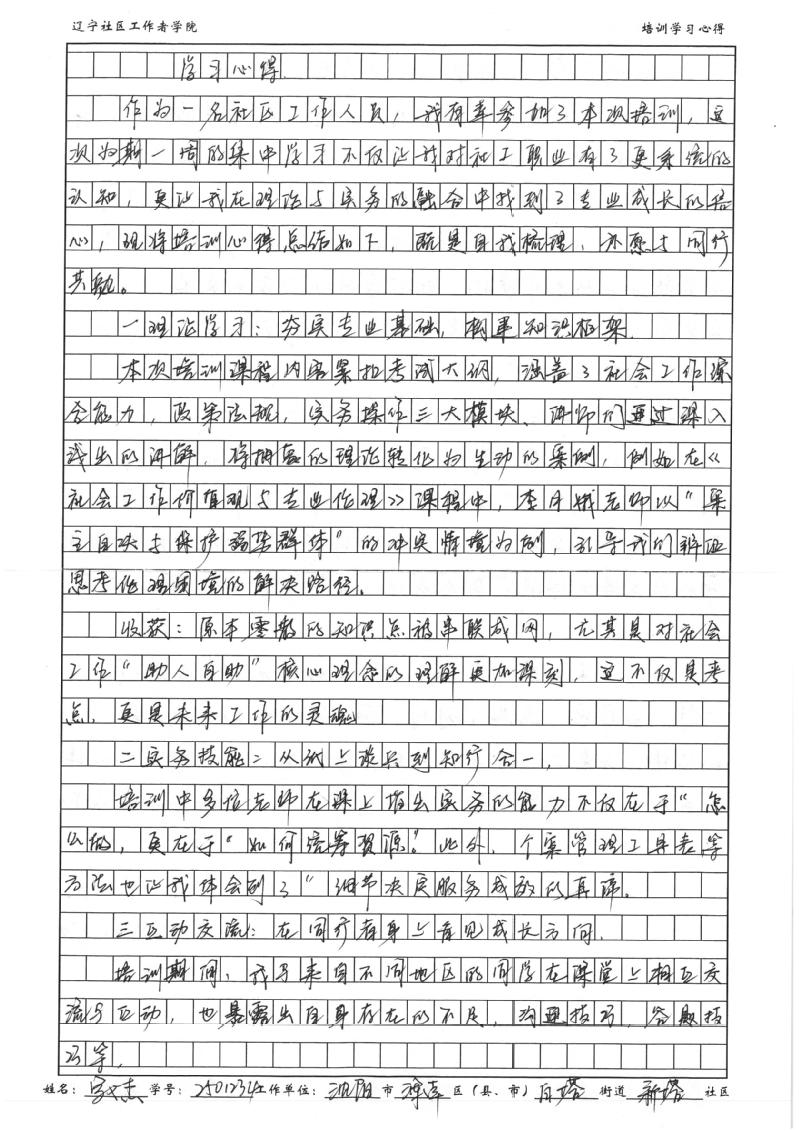 辽宁社区工作者学院 培训学习心得
学习心得.
作为一名社区工作人员，我有幸参加了本次培训，这
次为期一周的集中学习不仅让我对社工职业有了更系统的
认知，更让我在理论与实务的融合中找到了专业成长的信
心，现将培训心得总结如下，既是自我梳理，亦愿与同行
共勉。
一理论学习：夯实专业基础，构事知识框架.
本次培训课程内容紧扣考试大纲，涵盖了社会工作综
合能力，政策法规，实务操作三大模块、讲师们通过深入
浅出的讲解，将抽象的理论转化为生动的案例，例如在《
社会工作价值观与专业伦理》课程中，李月娥老师以“案
主自决与保护弱势群体”的冲突情境为例，引导我们辨证
思考伦理困境的解决路径.
收获：原本零散的知识点被串联成网，尤其是对社会
工作“助人自助”核心理念的理解更加深刻，这不仅是考
点，更是未来工作的灵魂
二实务技能：从纸上谈兵到知行合一，
培训中多位老师在课上指出实务的能力不仅在于“怎
么做，更在于“如何统筹资源”。此外，个案管理工具表等
方法也让我体会到了“细节决定服务成败的真谛。
三互动交流：在同行者身上看见成长方向.
培训期间，我与来自不同地区的同学在课堂上相互交
流与互动，也暴露出自身存在的不足，沟通技巧，答题技
巧等，
姓名： 学号：2501234 工作单位：沈阳 市 浑南 区（县、市） 白塔 街道 新塔 社区